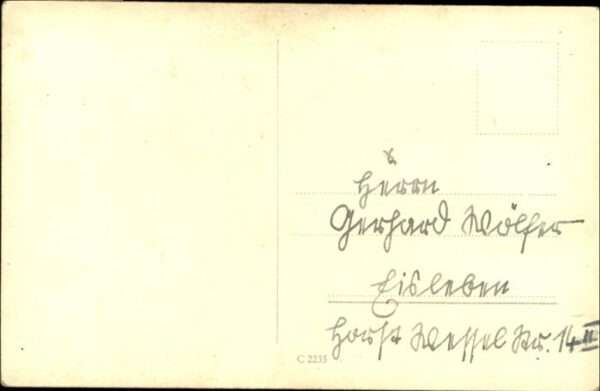 Herrn
Gerhard Wölfer
Eisleben
Horst Wessel Str. 14 II
C 2235